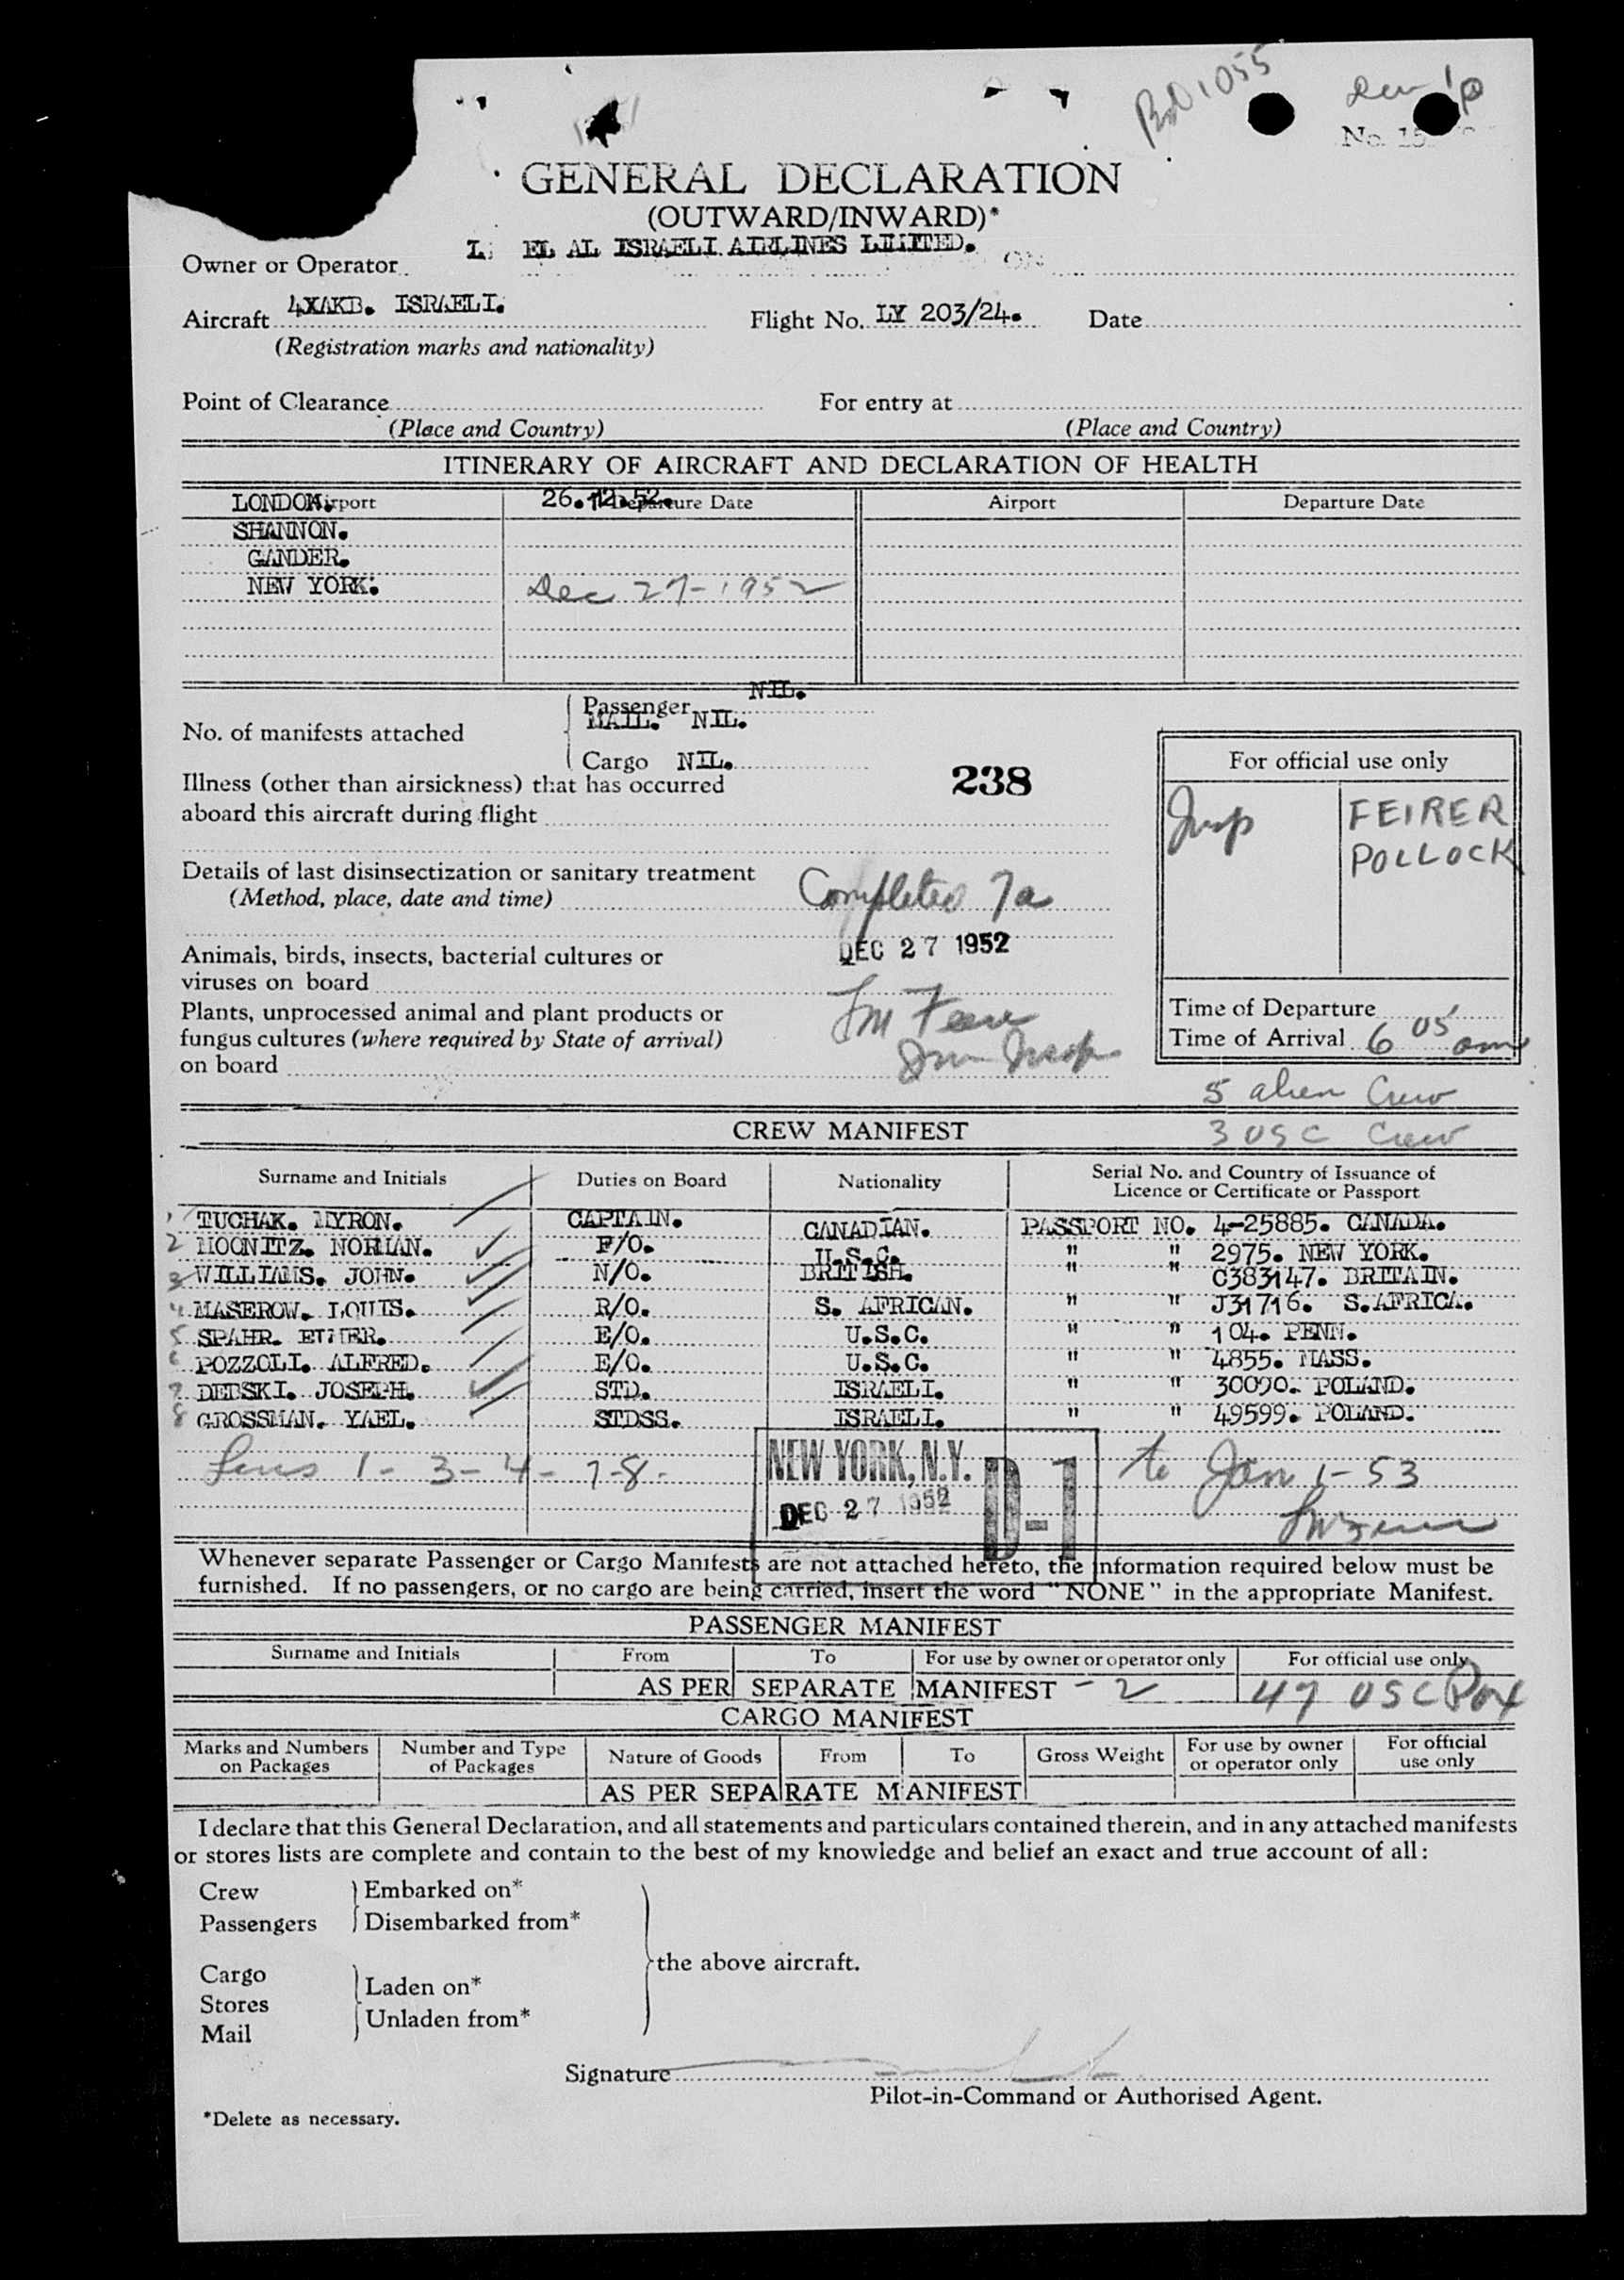 BD 1055
No. 15
GENERAL DECLARATION
(OUTWARD/INWARD)*
Owner or Operator EL AL ISRAELI AIRLINES LIMITED.
Aircraft 4XAKB. ISRAELI. Flight No. LY 203/24. Date
(Registration marks and nationality)
Point of Clearance For entry at
(Place and Country) (Place and Country)
ITINERARY OF AIRCRAFT AND DECLARATION OF HEALTH
Airport Departure Date Airport Departure Date
LONDON. 26.12.52.
SHANNON.
GANDER.
NEW YORK. Dec 27-1952
No. of manifests attached
Passenger NIL.
MAIL. NIL.
Cargo NIL.
238
For official use only
Insp FEIRER
POLLOCK
Illness (other than airsickness) that has occurred
aboard this aircraft during flight
Details of last disinsectization or sanitary treatment
(Method, place, date and time) Completed 7a
DEC 27 1952
Animals, birds, insects, bacterial cultures or
viruses on board
Plants, unprocessed animal and plant products or
fungus cultures (where required by State of arrival)
on board
Imm Insp
Time of Departure
Time of Arrival 6 05 am
5 alien Crew
CREW MANIFEST 3 USC Crew
Surname and Initials Duties on Board Nationality Serial No. and Country of Issuance of
Licence or Certificate or Passport
1 TUCHAK. MYRON. CAPTAIN. CANADIAN. PASSPORT NO. 4-25885. CANADA.
2 MOONITZ. NORMAN. F/O. U.S.C. " " 2975. NEW YORK.
3 WILLIAMS. JOHN. N/O. BRITISH. " " C383147. BRITAIN.
4 MASEROW. LOUIS. R/O. S. AFRICAN. " " J31716. S.AFRICA.
5 SPAHR. E/O. U.S.C. " " 104. PENN.
6 POZZOLI. ALFRED. E/O. U.S.C. " " 4855. MASS.
7 DEBSKI. JOSEPH. STD. ISRAELI. " " 30090. POLAND.
8 GROSSMAN. YAEL. STDSS. ISRAELI. " " 49599. POLAND.
1-3-4-7-8- to Jan 1-53
NEW YORK, N.Y.
DEC 27 1952
D-1
Whenever separate Passenger or Cargo Manifests are not attached hereto, the information required below must be
furnished. If no passengers, or no cargo are being carried, insert the word "NONE" in the appropriate Manifest.
PASSENGER MANIFEST
Surname and Initials From To For use by owner or operator only For official use only
AS PER SEPARATE MANIFEST - 2 47 USC Pox
CARGO MANIFEST
Marks and Numbers on Packages Number and Type of Packages Nature of Goods From To Gross Weight For use by owner or operator only For official use only
AS PER SEPARATE MANIFEST
I declare that this General Declaration, and all statements and particulars contained therein, and in any attached manifests
or stores lists are complete and contain to the best of my knowledge and belief an exact and true account of all:
Crew Embarked on*
Passengers Disembarked from*
the above aircraft.
Cargo Laden on*
Stores Unladen from*
Mail
Signature
Pilot-in-Command or Authorised Agent.
*Delete as necessary.